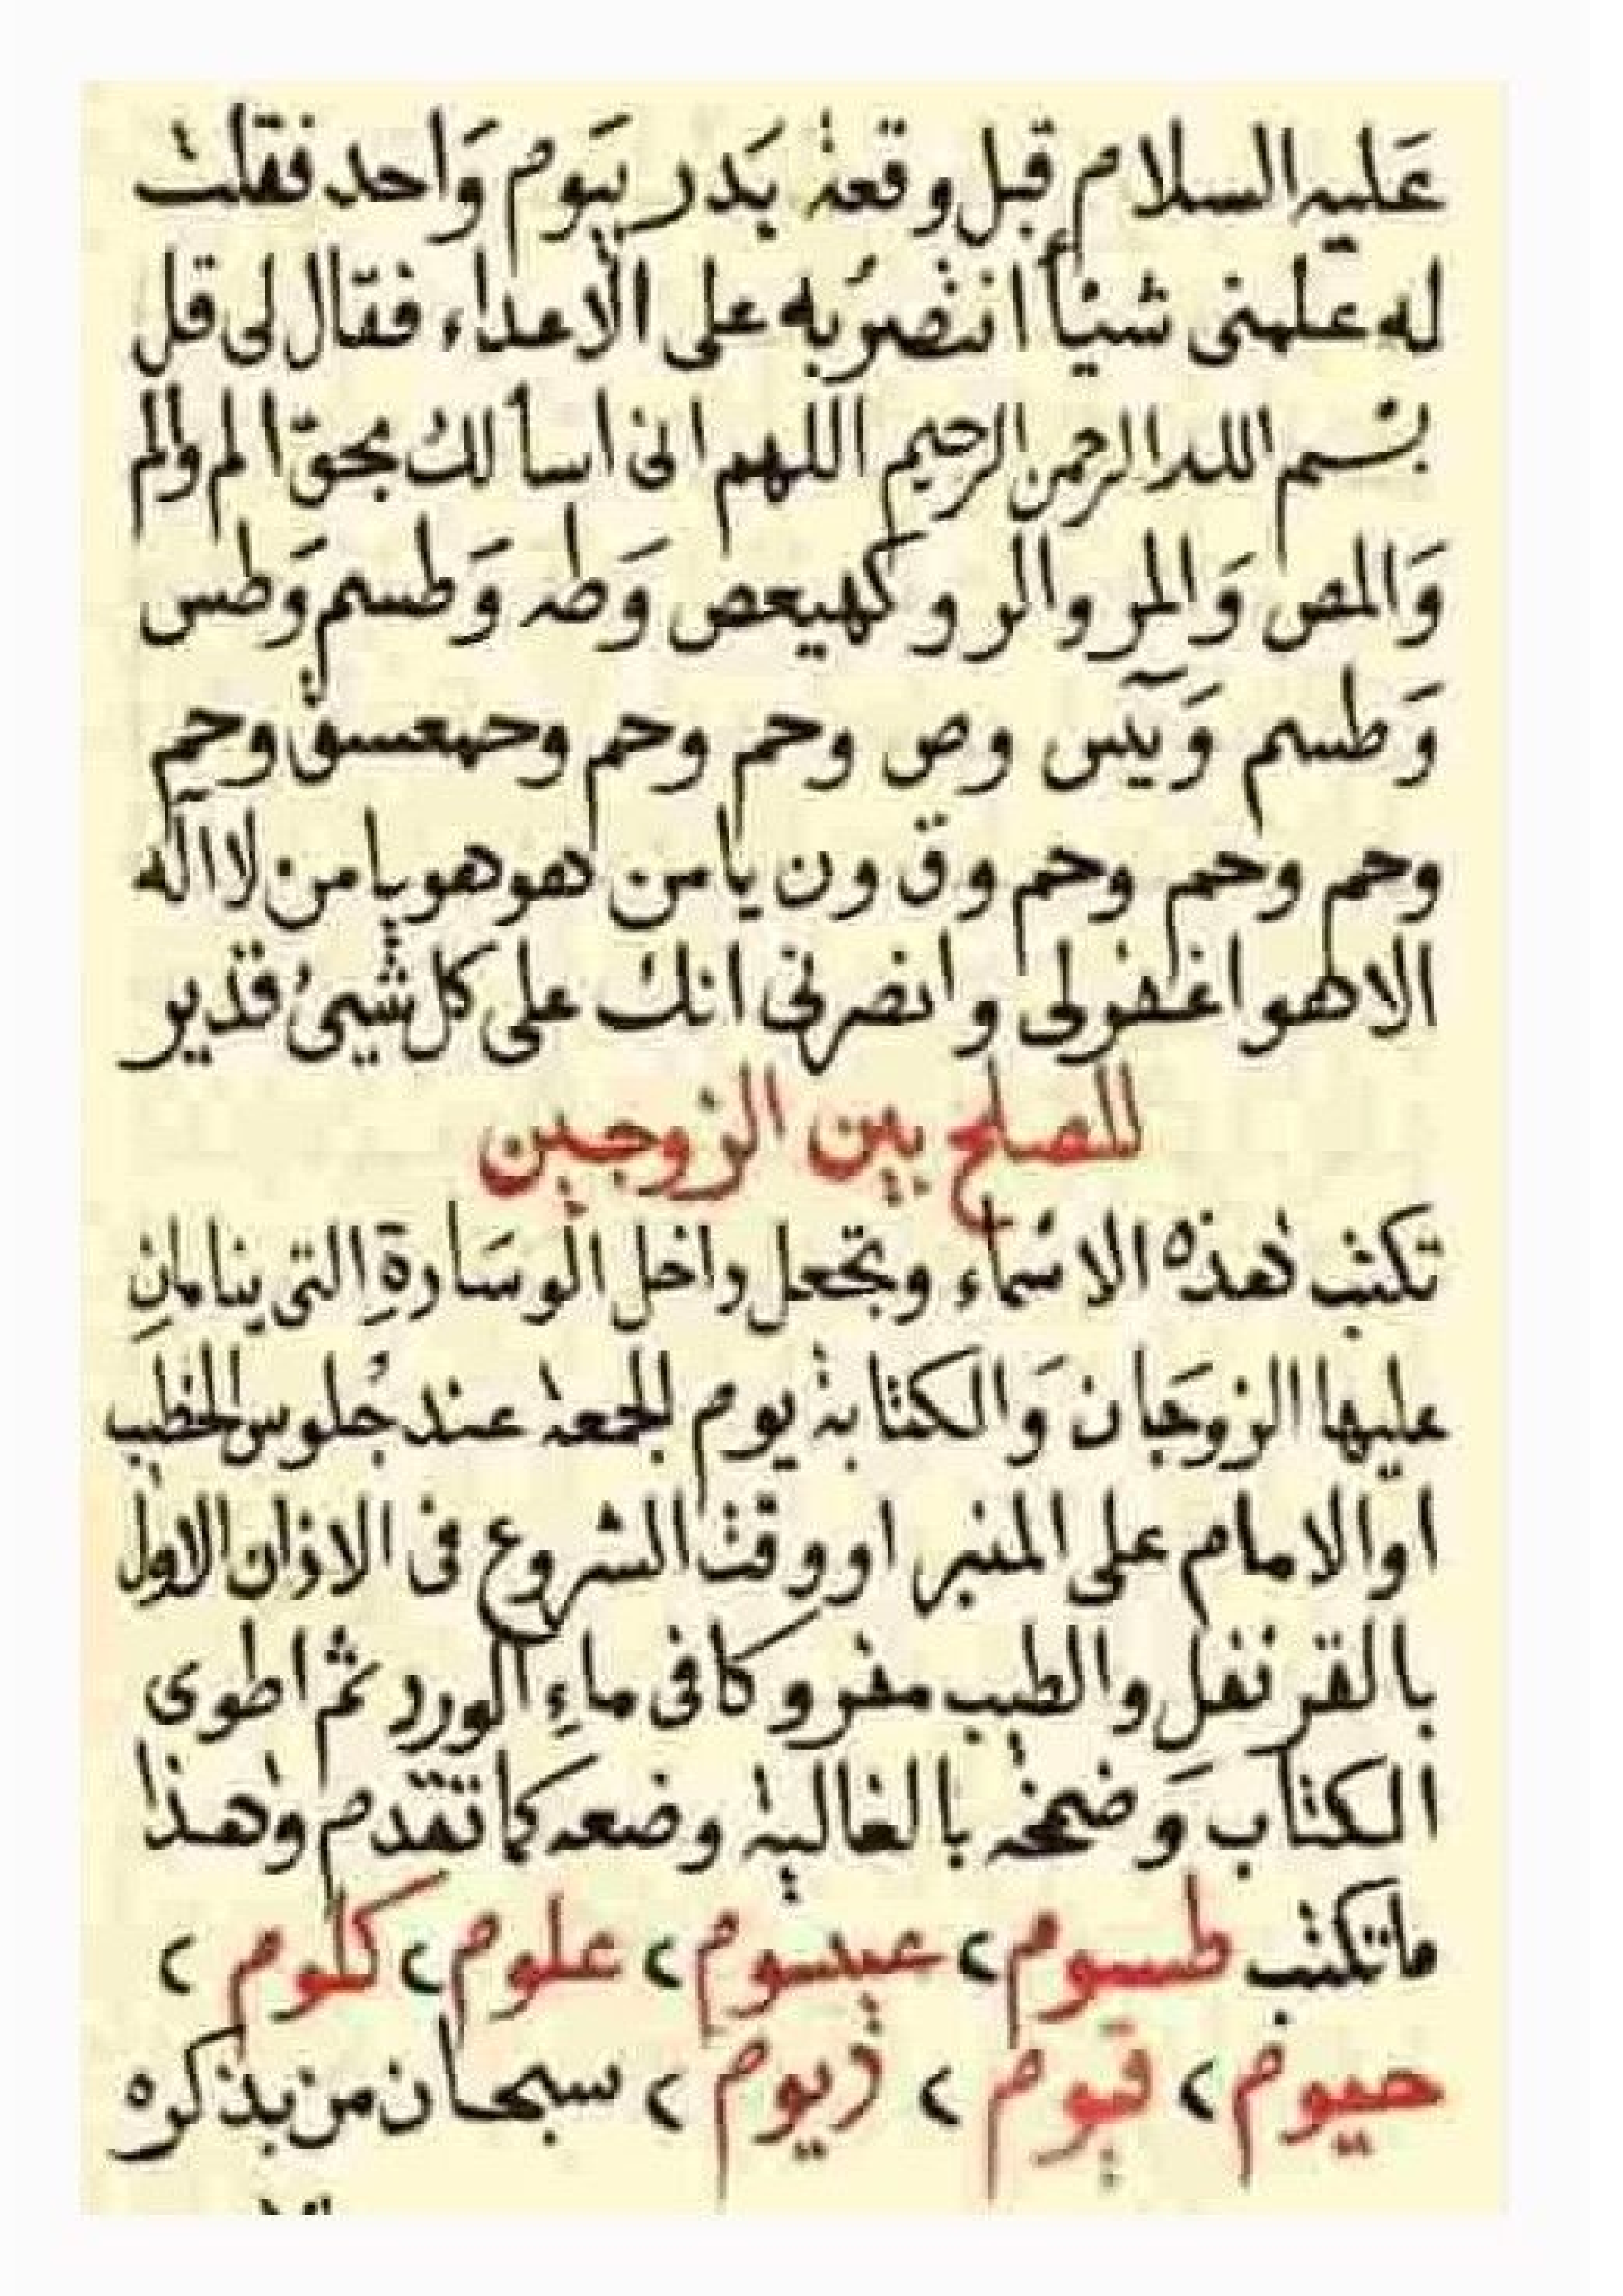 عَليه السلام قبل وقعة بَدر بيَوم وَاحد فقلت
له علمنى شيئاً انتصرُ به على الأعداء فقال لى قل
بسم الله الرحمن الرحيم اللهم انى اسألك بحق الم والم
وَالمص وَالمر والر وكهيعص وَطه وَطسم وَطس
وَطسم وَيٓس وص وحم وحم وحمعسق وحم
وحم وحم وحم وق ون يا من هو هو يا من لا اله
الا هو اغفر لى وانصرنى انك على كل شيئ قدير
للصلح بين الزوجين
تكتب هذه الاسماء وتجعل داخل الوسَادةِ التى ينامانِ
عليها الزوجَان وَالكتابة يوم الجمعة عند جُلوس الخطيب
او الامام على المنبر او وقت الشروع فى الاذان الاول
بالقرنفل والطيب مفروكا فى ماءِ الورد ثم اطوى
الكتاب وَضمخه بالغالية وضعه كما تقدم وهذا
ما تكتب طسوم ٢ عيسوم ٢ علوم ٢ كلوم ٢
حيوم ٢ قيوم ٢ ديوم ٢ سبحان من بذكره